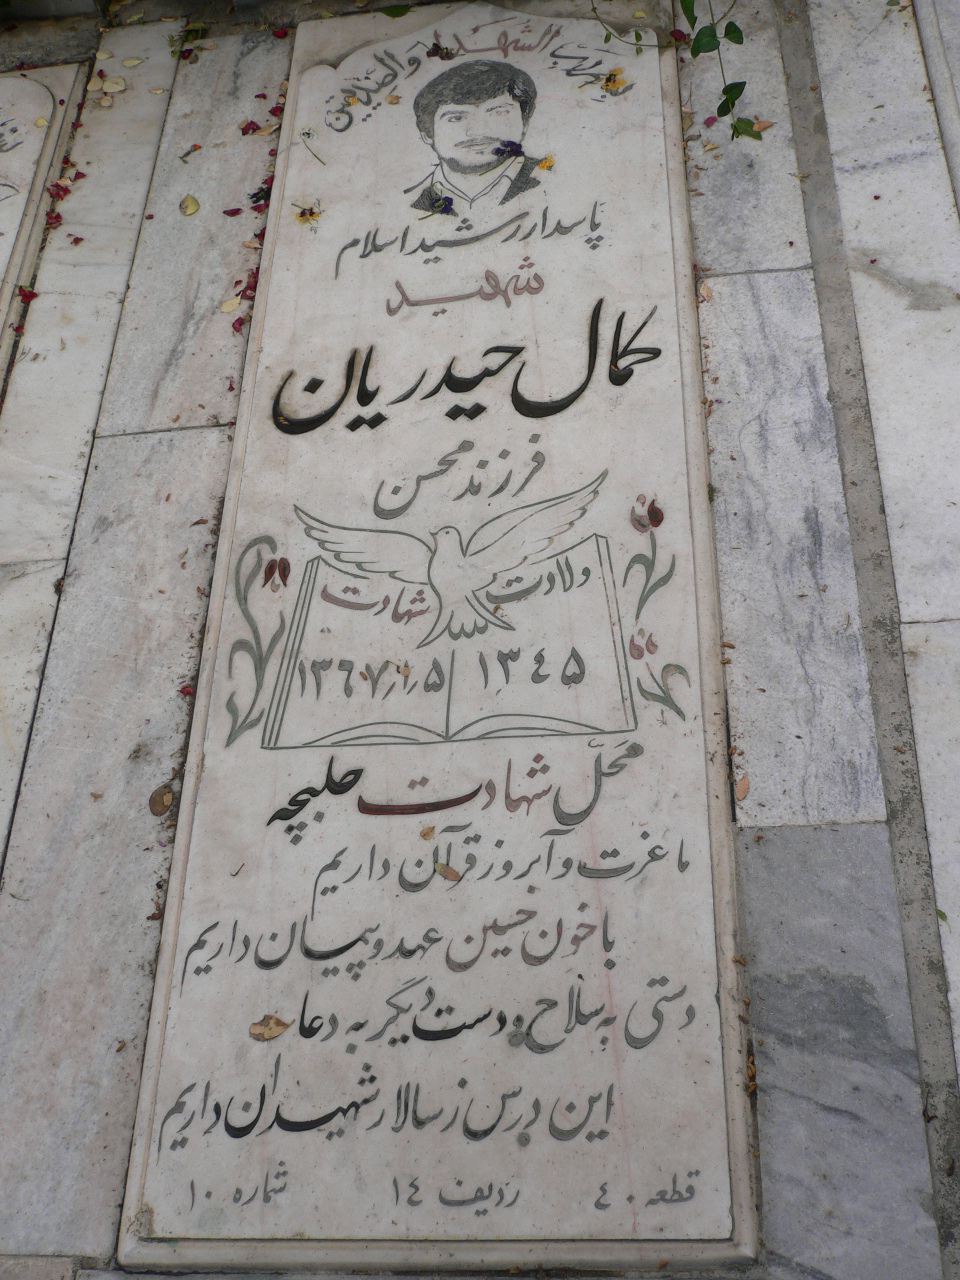 بسم رب الشهداء والصدیقین
پاسدار رشید اسلام
شهید
کمال حیدریان
فرزند محسن
ولادت شهادت
۱۳٤۵ ۱۳٦۷٫۱٫۵
محلّ شهادت حلبچه
ما عزت و آبرو ز قرآن داریم
با خون حسین عهد و پیمان داریم
دستی به سلاح و دست دیگر به دعا
این درس ز سالار شهیدان داریم
قطعه ٤۰ ردیف ۱٤ شماره ۱۰